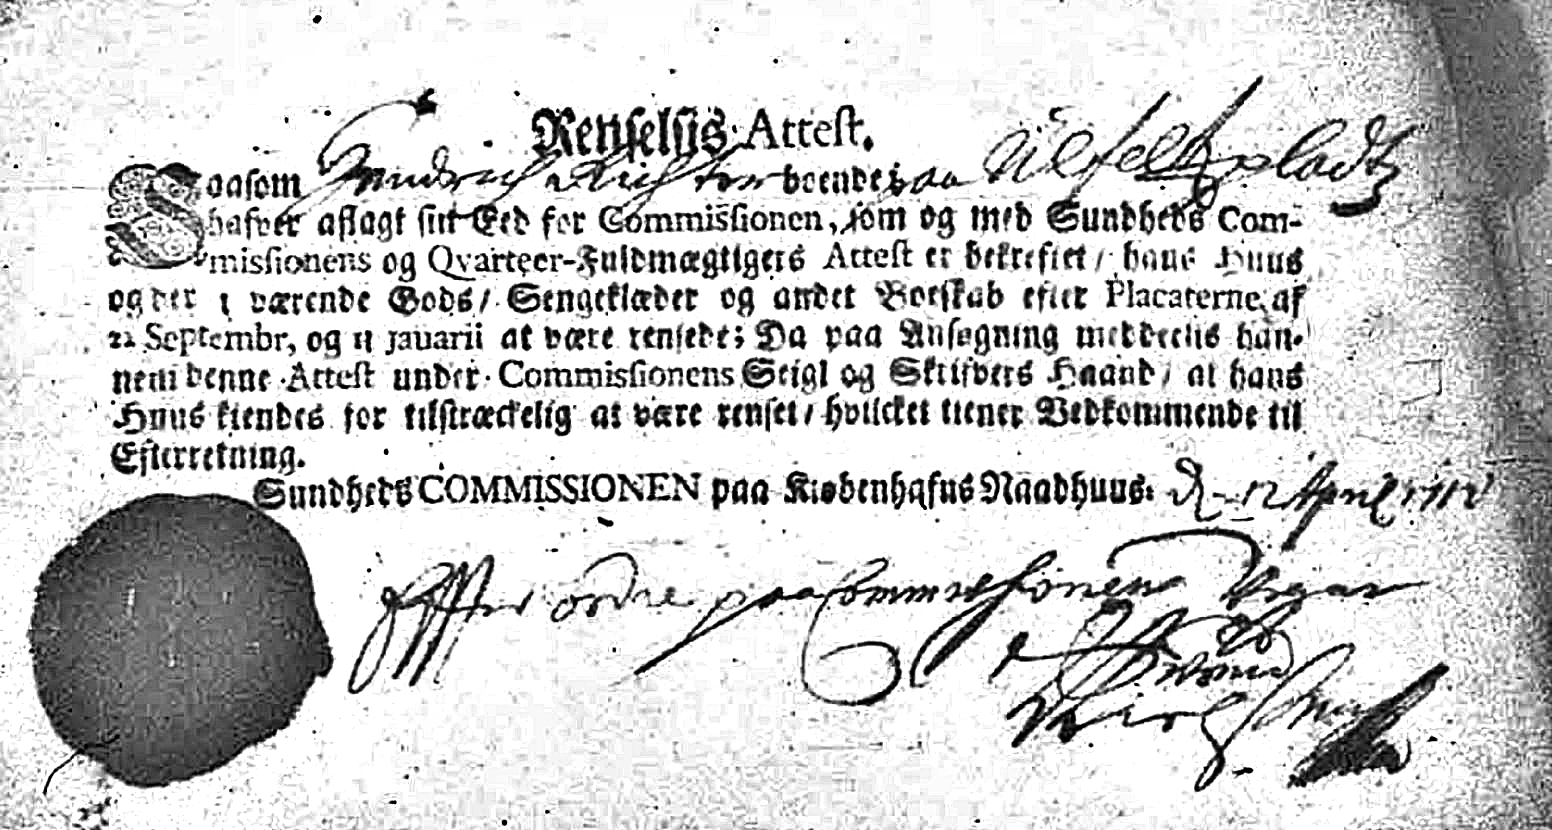 Renselsis Attest.
Saasom boende paa Ulfeldtz pladtz
hafver aflagt sin Eed for Commissionen, som og med Sundheds Com-
missionens og Qvarteer-Fuldmægtigers Attest er bekreftet / hans Huus
og der i værende Gods / Sengeklæder og andet Boeskab efter Placaterne af
22 Septembr, og 11 Januarii at være rensede; Da paa Ansøgning meddeelis han-
nem denne Attest under Commissionens Seigl og Skrifvers Haand / at hans
Huus kiendes for tilstræckelig at være renset / hvilcket tiener Vedkommende til
Efterretning.
Sundheds COMMISSIONEN paa Kiøbenhafns Raadhuus. d. 12 April 1712
Effter ordre paa Commissionens Vegne